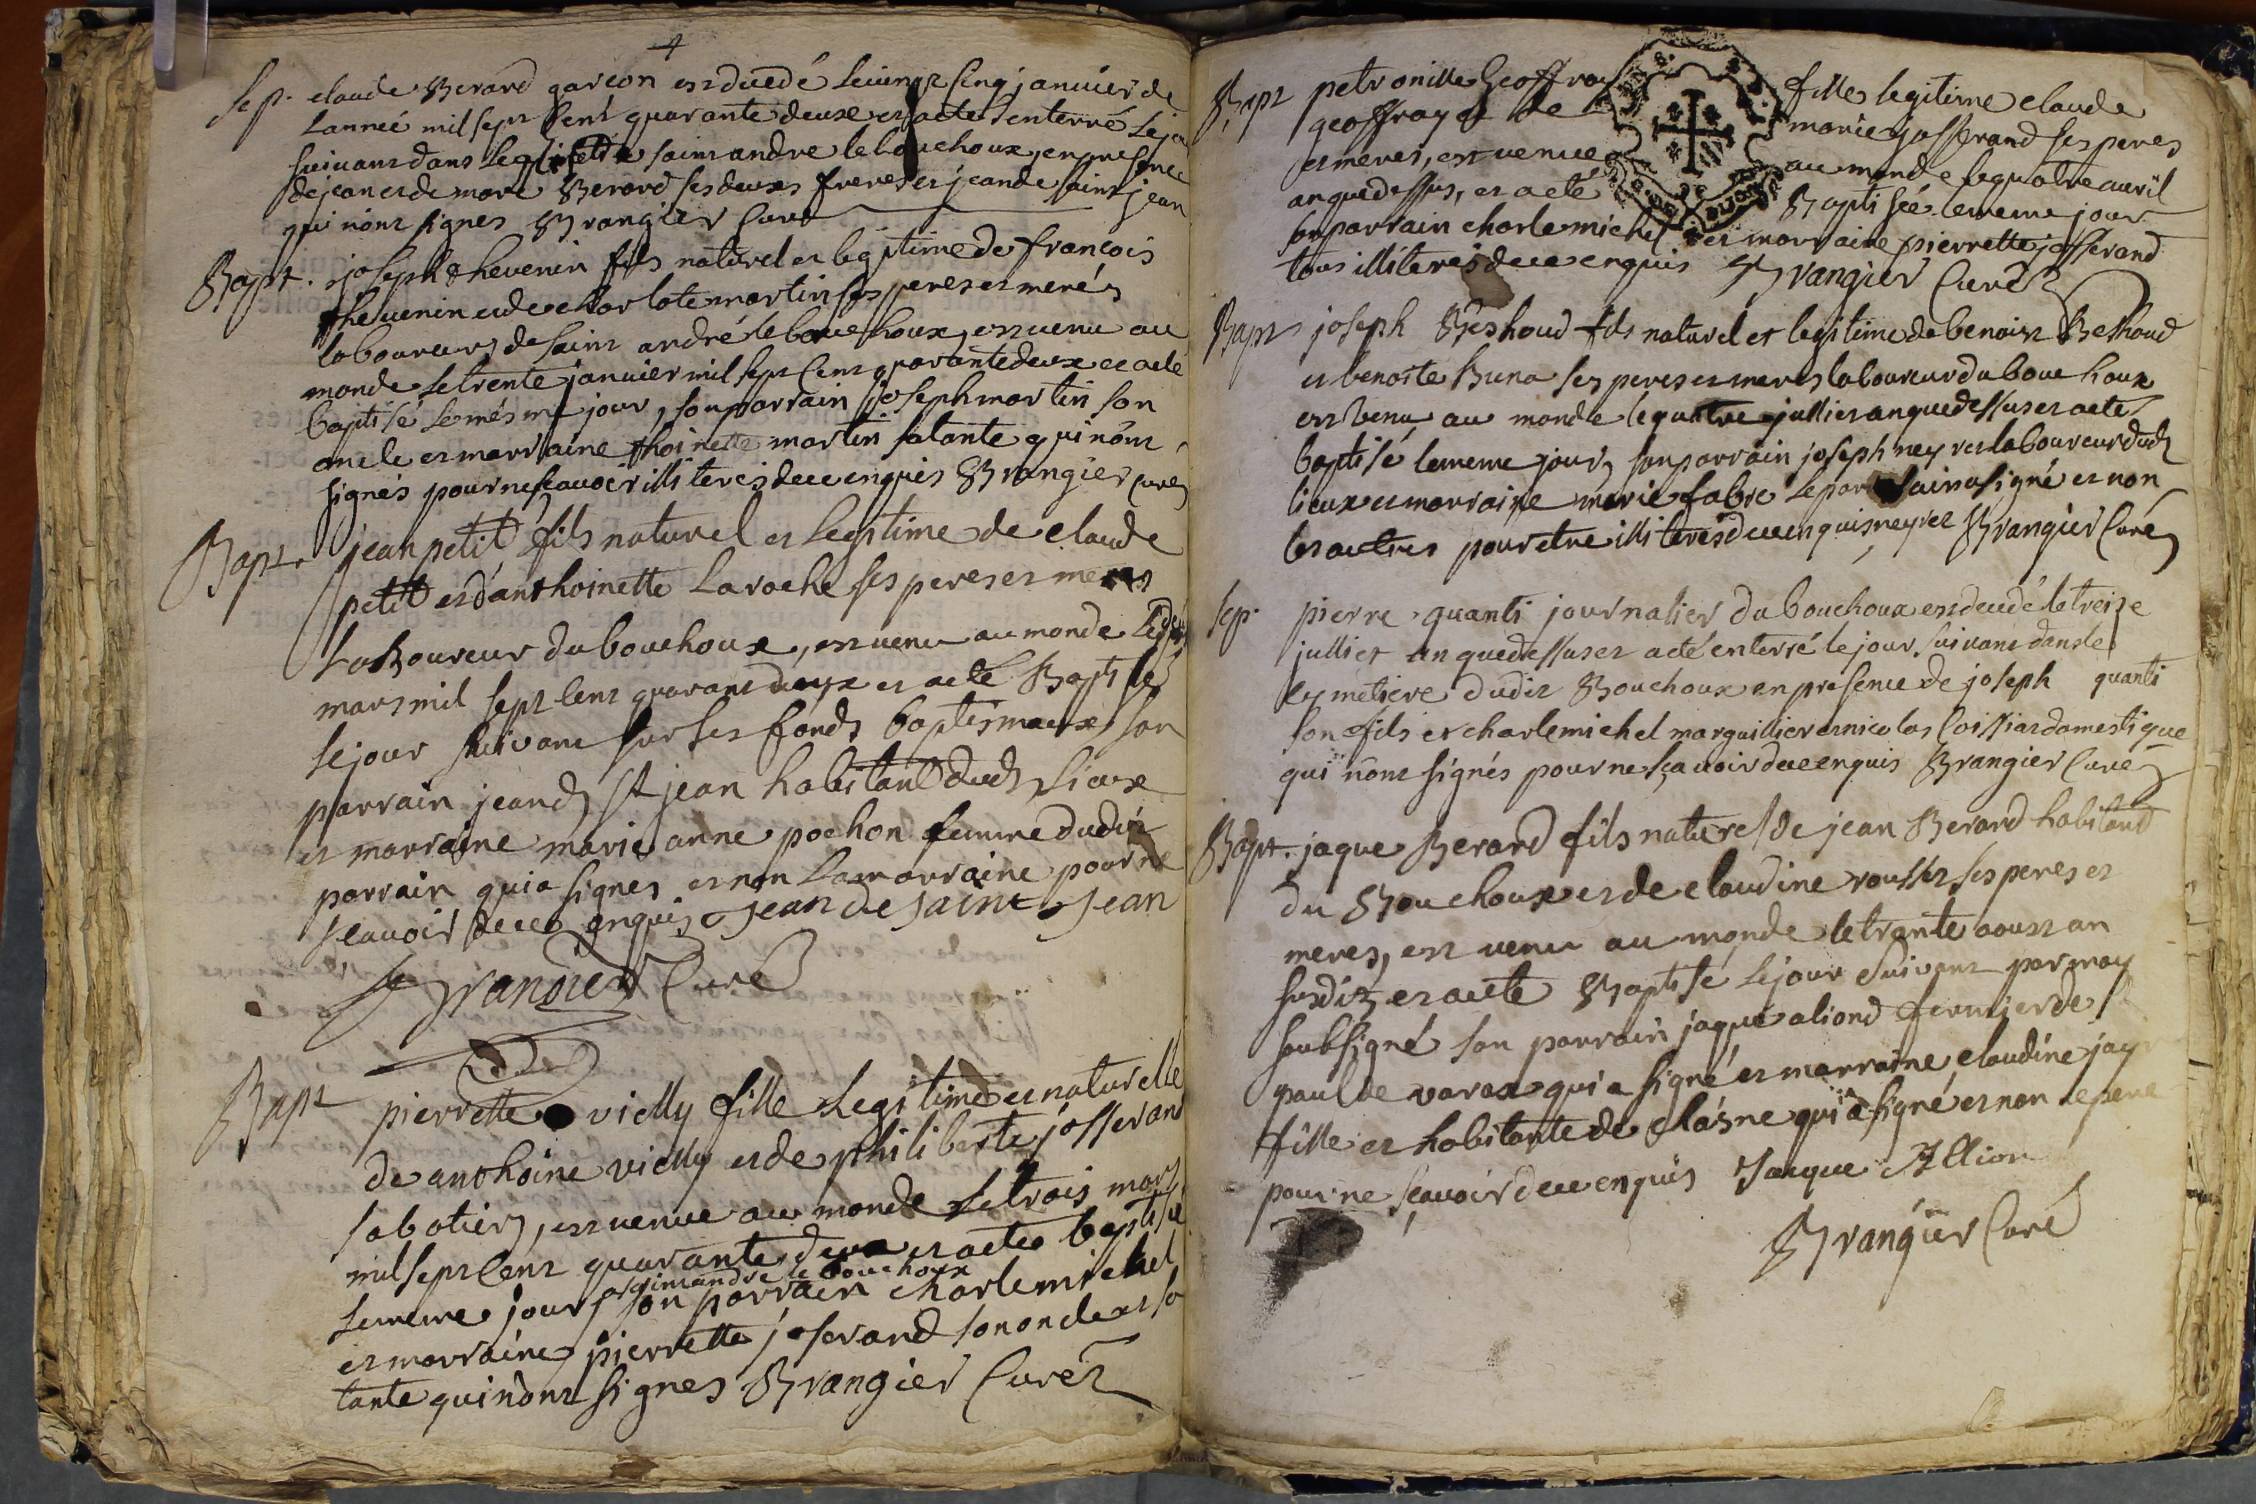 4
Sep. claude Berard garcon est decedé le vingt cinq janvier de
Lanneé mil sept Cent quarante deux et a eté enterré le jour
suivant dans l'eglise de saint andre le bouchoux, en presence
de jean et de marc Berard ses deuxs freres et jean de saint jean
qui n'ont signes Brangier Curé
Bapt. joseph thevenin fils naturel et legitime de françois
thevenin et de charlote martin ses peres et merés
laboureurs de saint andré le bouchoux, est venu au
monde le trente janvier mil sept Cent quarante deux et a eté
baptisé le mésme jour, son parrain joseph martin son
oncle et marraine thoinette martin sa tante qui n'ont
signés pour ne scavoir illiterés de ce enquis Brangier curé
Bapt. jean petit fils naturel et legitime de claude
petit et d'anthoinette Laroche ses peres et meres
Laboureur du bouchoux, est venu au monde le
mars mil sept Cent quarant deux et a eté Baptisé
le jour suivant sur les fonds baptismaux son
parrain jean de St jean habitant dud lieux
et marraine marie anne pochon femme dudit
parrain qui a signes et non La marraine pour ne
scavoir de ce enquis jean de saint jean
Brangier Curé
Bapt pierrette vielly fille Legitime et naturelle
de anthoine vielly et de philiberte josserand
sabotiers, est venue au monde le trois mars
mil sept Cent quarante deux et a eté baptisé
a saint andre le bouchoux
le meme jour son parrain charle michel
et marraine pierrette joserand son oncle et sa
tante qui n'ont signes Brangier Curé
Bapt petronille Geoffray fille legitime claude
geoffray et de marie josserand ses peres
et meres, est venue au monde le quatre avril
an que dessus, et a eté Baptisée le meme jour
son parrain charle michel et marraine pierrette josserand
tous illiterés de ce enquis Brangier Curé
Bapt joseph Beshoud fils naturel et legitime de benoist Beshoud
et benoite Buna ses peres et meres laboureur du bouchoux
est venu au monde le quatre julliet an que dessus et a eté
baptisé le meme jour, son parrain joseph neyret laboureur dud
lieux et marraine marie fabre le parrain a signé et non
les autres pour etre illiterés de ce enquis neyret Brangier Curé
Sep. pierre quanti journalier du bouchoux est decedé le treize
julliet an que dessus et a eté enterré le jour suivant dans le
cymetiere dudit Bouchoux en presence de joseph quanti
son fils et charle michel marguillier et nicolas Loissiar domestique
qui n'ont signés pour ne sçavoir de ce enquis Brangier Curé
Bapt. jaque Berard fils naturel de jean Berard habitand
du Bouchoux et de claudine rousset ses peres et
meres, est venu au monde le trante aoust an
susdit, et a eté Baptisé le jour suivant par moy
soubsigné son parrain jaque aliond fermier de
paul de varax qui a signé et marraine claudine jay
fille et habitante de chasne qui a signé et non le pere
pour ne sçavoir de ce enquis Jacque Allion
Brangier Curé